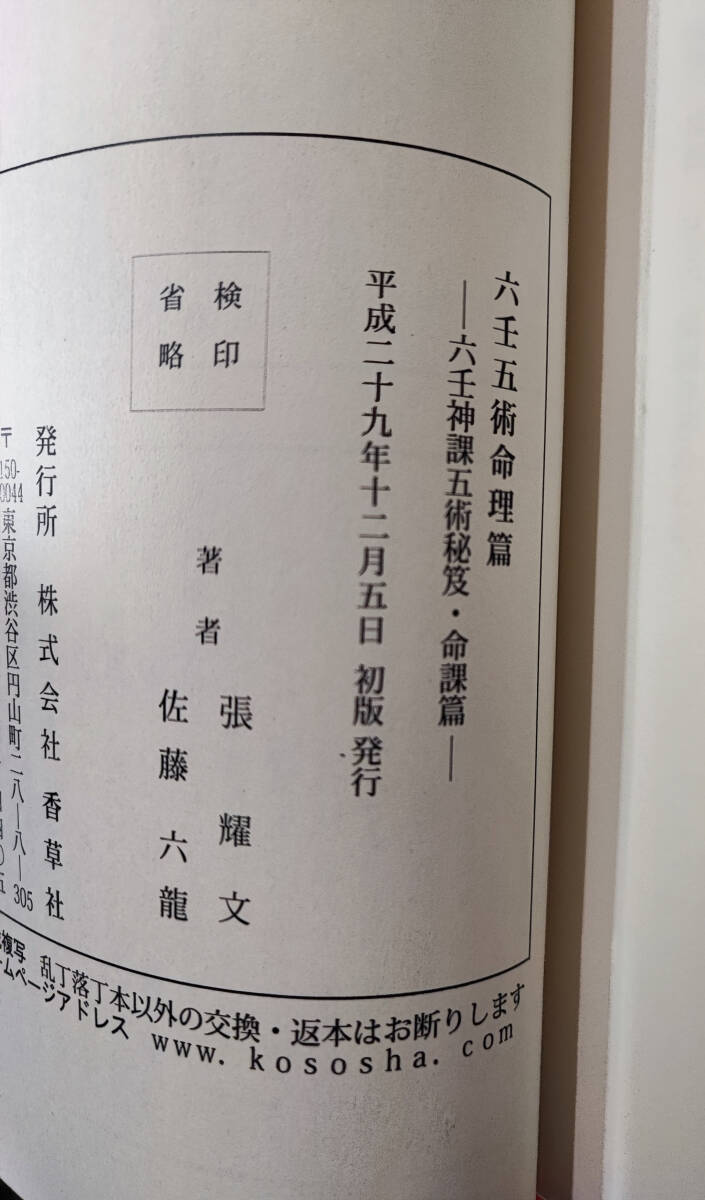 六壬五術命理篇
―六壬神課五術秘笈・命課篇―
平成二十九年十二月五日 初版 発行
検印
省略
著者
張耀文
佐藤六龍
発行所 株式会社 香草社
〒150-0044 東京都渋谷区円山町二八―八―305
複写
乱丁落丁本以外の交換・返本はお断りします
ームページアドレス www.kososha.com